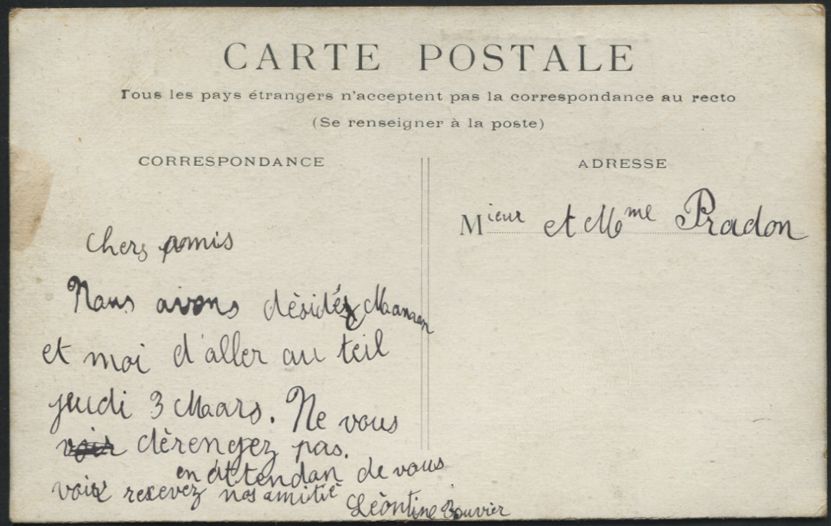 CARTE POSTALE
Tous les pays étrangers n'acceptent pas la correspondance au recto
(Se renseigner à la poste)
CORRESPONDANCE
ADRESSE
Mieur et Mme Pradon
Chers amis
Nous avons dèsidéz Maaman
et moi d'aller au teil
jeudi 3 Maars. Ne vous
voir dèrengez pas.
en attendan de vous
voir recevez nos amitié
Lèontine Bouvier